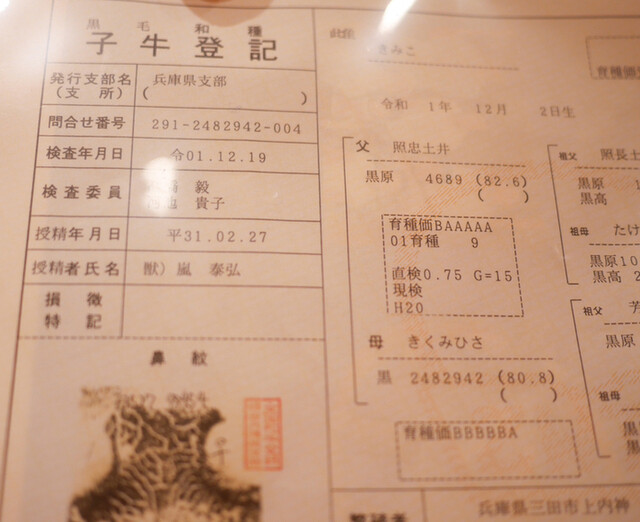 黒毛和種
子牛登記
発行支部名
(支所)
兵庫県支部
( )
問合せ番号
291-2482942-004
検査年月日
令01.12.19
検査委員
毅
貴子
授精年月日
平31.02.27
授精者氏名
獣)嵐 泰弘
損徴
特記
鼻紋
きみこ
育種価
令和 1年 12月 2日生
父 照忠土井
黒原 4689 (82.6)
( )
育種価BAAAAA
01育種 9
直検0.75 G=15
現検
H20
母 きくみひさ
黒 2482942 (80.8)
( )
育種価BBBBBA
祖父 照長土
黒原
黒高
祖母 たけ
黒原10
黒高 2
祖父 芳
黒原
祖母
黒
兵庫県三田市上内神